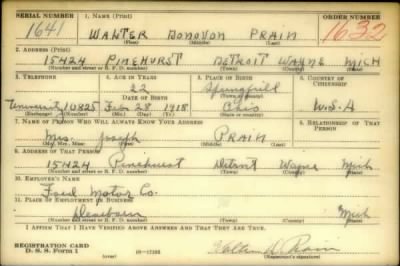 SERIAL NUMBER 1. NAME (Print) ORDER NUMBER
1641 WALTER DONOVON PRAIN 1632
(First) (Middle) (Last)
2. ADDRESS (Print)
15424 PINEHURST DETROIT WAYNE MICH
(Number and street or R. F. D. number) (Town) (County) (State)
3. TELEPHONE 4. AGE IN YEARS 5. PLACE OF BIRTH 6. COUNTRY OF CITIZENSHIP
22 Springfield
DATE OF BIRTH
University 10825 Feb 28 1918 Ohio U-S-A
(Exchange) (Number) (Mo.) (Day) (Yr.) (State or country)
7. NAME OF PERSON WHO WILL ALWAYS KNOW YOUR ADDRESS 8. RELATIONSHIP OF THAT PERSON
Mrs. Joseph PRAIN
(Mr., Mrs., Miss) (First) (Middle) (Last)
9. ADDRESS OF THAT PERSON
15424 Pinehurst Detroit Wayne Mich
(Number and street or R. F. D. number) (Town) (County) (State)
10. EMPLOYER'S NAME
Ford Motor Co.
11. PLACE OF EMPLOYMENT OR BUSINESS
Dearborn Mich
(Number and street or R. F. D. number) (Town) (County) (State)
I AFFIRM THAT I HAVE VERIFIED ABOVE ANSWERS AND THAT THEY ARE TRUE.
REGISTRATION CARD
D. S. S. Form 1 Walter D. Prain
(Registrant's signature)